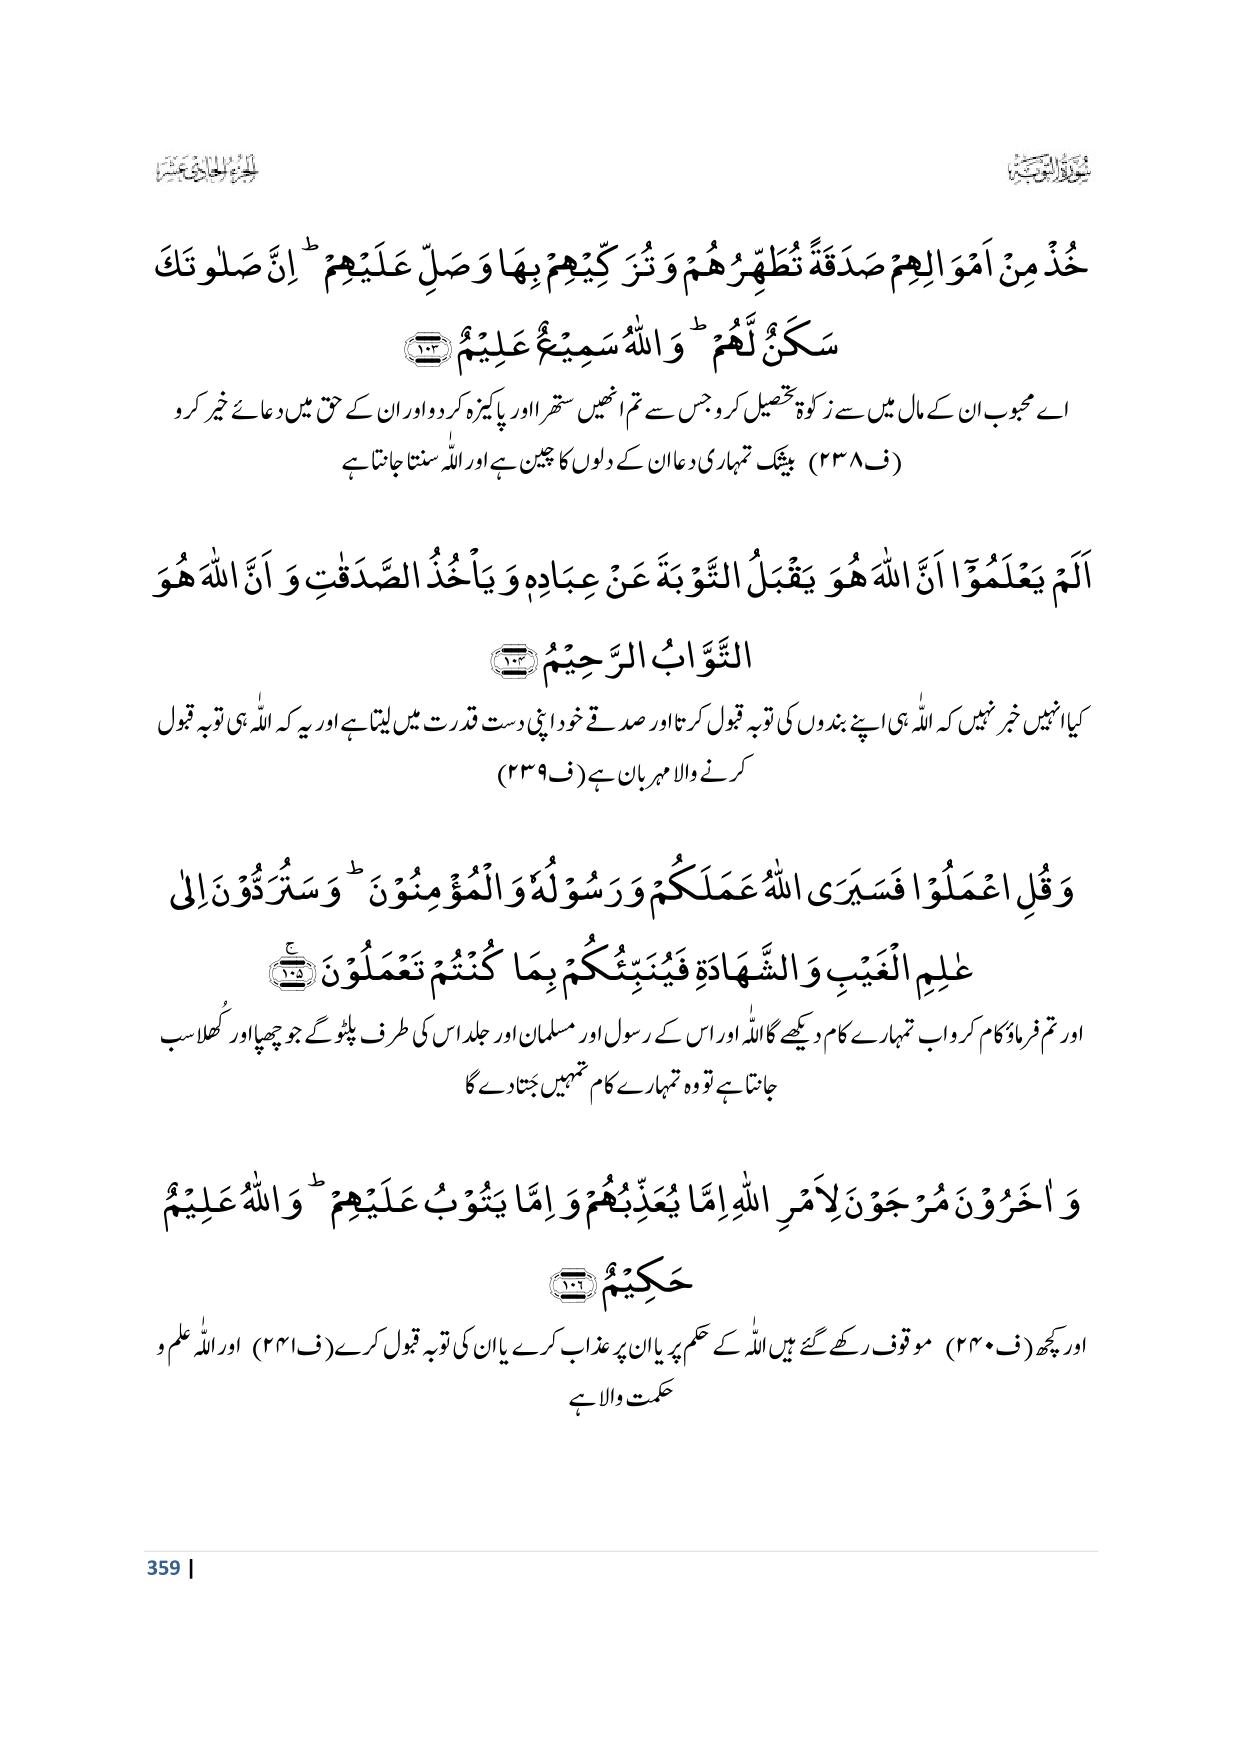 سُوۡرَةُ التَّوۡبَةِ
اَلۡجُزۡءُ الۡحَادِیۡ عَشَرَ
خُذۡ مِنۡ اَمۡوَالِهِمۡ صَدَقَةً تُطَهِّرُهُمۡ وَتُزَكِّيۡهِمۡ بِهَا وَصَلِّ عَلَيۡهِمۡ ؕ اِنَّ صَلٰوتَكَ
سَكَنٌ لَّهُمۡ ؕ وَاللّٰهُ سَمِيۡعٌ عَلِيۡمٌ ﴿۱۰۳﴾
اے محبوب ان کے مال میں سے زکوٰۃ تحصیل کرو جس سے تم انھیں ستھرا اور پاکیزہ کردو اور ان کے حق میں دعائے خیر کرو
(ف۲۳۸) بیشک تمہاری دعا ان کے دلوں کا چین ہے اور اللّٰہ سنتا جانتا ہے
اَلَمۡ يَعۡلَمُوۡۤا اَنَّ اللّٰهَ هُوَ يَقۡبَلُ التَّوۡبَةَ عَنۡ عِبَادِهٖ وَيَاۡخُذُ الصَّدَقٰتِ وَ اَنَّ اللّٰهَ هُوَ
التَّوَّابُ الرَّحِيۡمُ ﴿۱۰۴﴾
کیا انہیں خبر نہیں کہ اللّٰہ ہی اپنے بندوں کی توبہ قبول کرتا اور صدقے خود اپنی دست قدرت میں لیتا ہے اور یہ کہ اللّٰہ ہی توبہ قبول
کرنے والا مہربان ہے (ف۲۳۹)
وَقُلِ اعۡمَلُوۡا فَسَيَرَى اللّٰهُ عَمَلَكُمۡ وَرَسُوۡلُهٗ وَالۡمُؤۡمِنُوۡنَ ؕ وَسَتُرَدُّوۡنَ اِلٰى
عٰلِمِ الۡغَيۡبِ وَالشَّهَادَةِ فَيُنَبِّئُكُمۡ بِمَا كُنۡتُمۡ تَعۡمَلُوۡنَ ﴿۱۰۵﴾ۚ
اور تم فرماؤ کام کرو اب تمہارے کام دیکھے گا اللّٰہ اور اس کے رسول اور مسلمان اور جلد اس کی طرف پلٹو گے جو چھپا اور کُھلا سب
جانتا ہے تو وہ تمہارے کام تمہیں جَتا دے گا
وَ اٰخَرُوۡنَ مُرۡجَوۡنَ لِاَمۡرِ اللّٰهِ اِمَّا يُعَذِّبُهُمۡ وَ اِمَّا يَتُوۡبُ عَلَيۡهِمۡ ؕ وَاللّٰهُ عَلِيۡمٌ
حَكِيۡمٌ ﴿۱۰۶﴾
اور کچھ (ف۲۴۰) موقوف رکھے گئے ہیں اللّٰہ کے حکم پر یا ان پر عذاب کرے یا ان کی توبہ قبول کرے (ف۲۴۱) اور اللّٰہ علم و
حکمت والا ہے
359 |